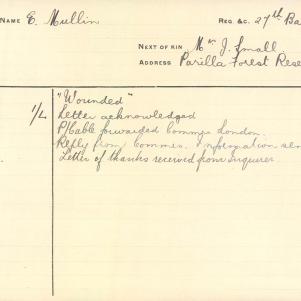 NAME E. Mullin REG. &C. 27th Ba
NEXT OF KIN Mr J. Small
ADDRESS Parilla Forest Rese
1/L "Wounded"
Letter acknowledged
P/Cable forwarded Commrs London.
Reply from Commrs. Information sen
Letter of thanks received from inquirer